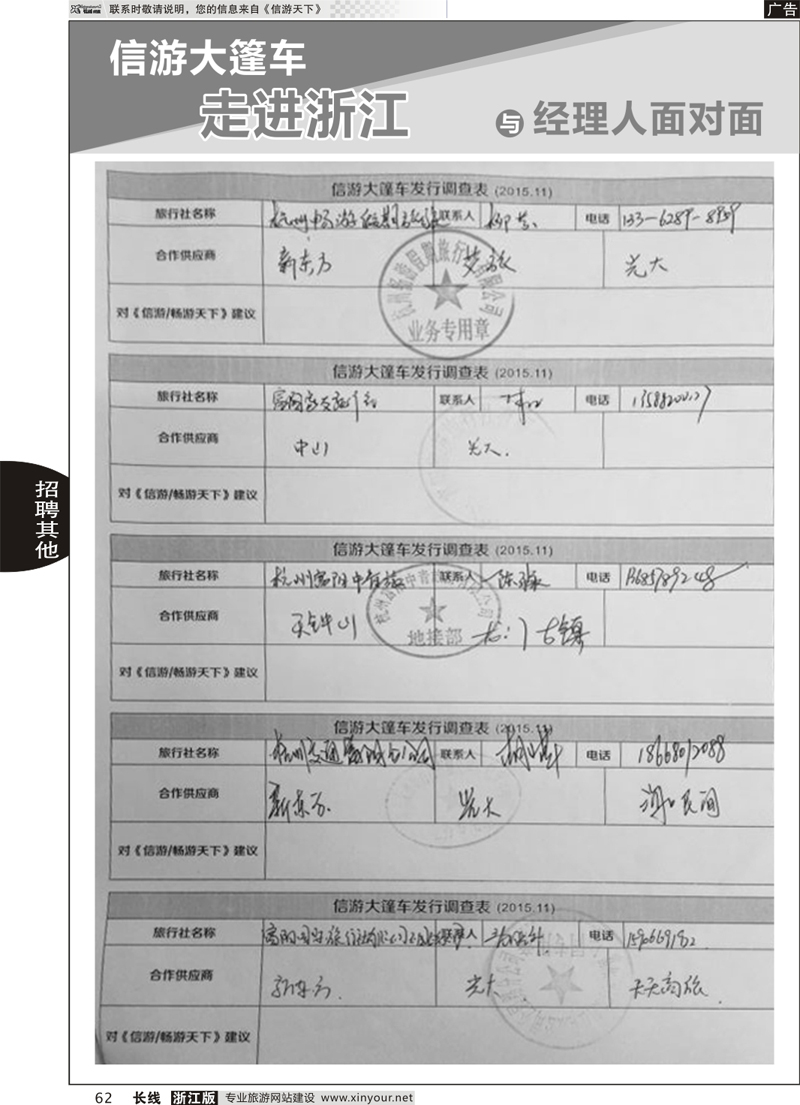 联系时敬请说明，您的信息来自《信游天下》
广告
信游大篷车
走进浙江 与 经理人面对面
招聘其他
信游大篷车发行调查表 (2015.11)
旅行社名称 杭州畅游假期旅游 联系人 电话 133-6289-8959
合作供应商 新东方 梦旅 光大
对《信游/畅游天下》建议
业务专用章
信游大篷车发行调查表 (2015.11)
旅行社名称 联系人 电话
合作供应商 中山 光大.
对《信游/畅游天下》建议
信游大篷车发行调查表 (2015.11)
旅行社名称 杭州富阳中青旅 联系人 电话 13685789248
合作供应商 古镇
地接部
对《信游/畅游天下》建议
信游大篷车发行调查表 (2015.11)
旅行社名称 联系人 电话
合作供应商 新东方 光大 民间
对《信游/畅游天下》建议
信游大篷车发行调查表 (2015.11)
旅行社名称 联系人 电话
合作供应商 新东方. 光大 天天商旅.
对《信游/畅游天下》建议
62 长线 浙江版 专业旅游网站建设 www.xinyour.net